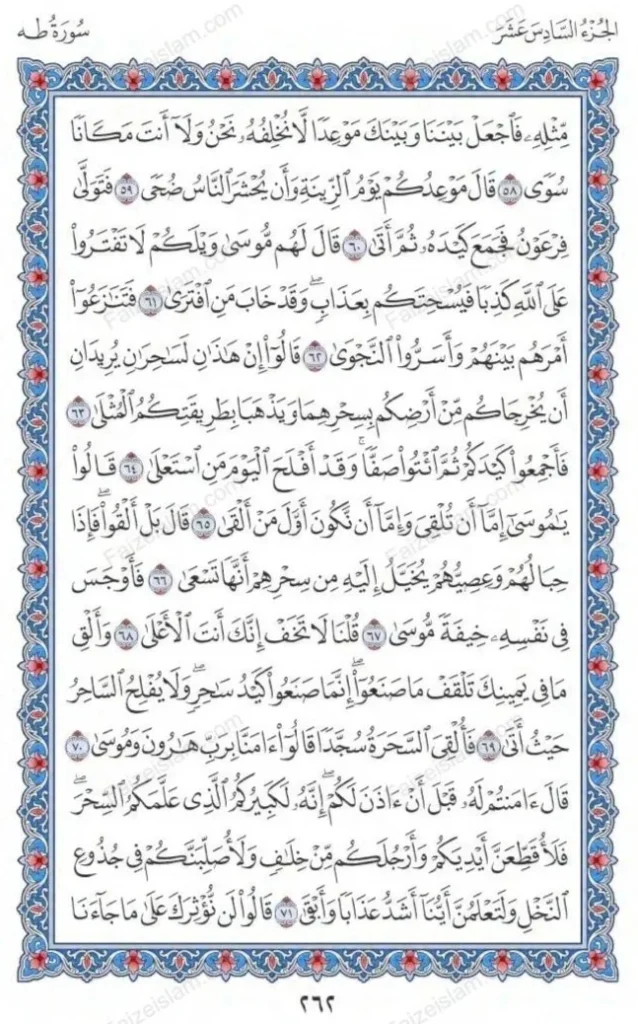 الجُزْءُ السَّادِسَ عَشَرَ
سُورَةُ طه
مِّثْلِهِۦ فَٱجْعَلْ بَيْنَنَا وَبَيْنَكَ مَوْعِدًا لَّا نُخْلِفُهُۥ نَحْنُ وَلَآ أَنتَ مَكَانًا
سُوًى ٥٨ قَالَ مَوْعِدُكُمْ يَوْمُ ٱلزِّينَةِ وَأَن يُحْشَرَ ٱلنَّاسُ ضُحًى ٥٩ فَتَوَلَّىٰ
فِرْعَوْنُ فَجَمَعَ كَيْدَهُۥ ثُمَّ أَتَىٰ ٦٠ قَالَ لَهُم مُّوسَىٰ وَيْلَكُمْ لَا تَفْتَرُوا۟
عَلَى ٱللَّهِ كَذِبًا فَيُسْحِتَكُم بِعَذَابٍ ۖ وَقَدْ خَابَ مَنِ ٱفْتَرَىٰ ٦١ فَتَنَـٰزَعُوٓا۟
أَمْرَهُم بَيْنَهُمْ وَأَسَرُّوا۟ ٱلنَّجْوَىٰ ٦٢ قَالُوٓا۟ إِنْ هَـٰذَٰنِ لَسَـٰحِرَٰنِ يُرِيدَانِ
أَن يُخْرِجَاكُم مِّنْ أَرْضِكُم بِسِحْرِهِمَا وَيَذْهَبَا بِطَرِيقَتِكُمُ ٱلْمُثْلَىٰ ٦٣
فَأَجْمِعُوا۟ كَيْدَكُمْ ثُمَّ ٱئْتُوا۟ صَفًّا ۚ وَقَدْ أَفْلَحَ ٱلْيَوْمَ مَنِ ٱسْتَعْلَىٰ ٦٤ قَالُوا۟
يَـٰمُوسَىٰٓ إِمَّآ أَن تُلْقِىَ وَإِمَّآ أَن نَّكُونَ أَوَّلَ مَنْ أَلْقَىٰ ٦٥ قَالَ بَلْ أَلْقُوا۟ ۖ فَإِذَا
حِبَالُهُمْ وَعِصِيُّهُمْ يُخَيَّلُ إِلَيْهِ مِن سِحْرِهِمْ أَنَّهَا تَسْعَىٰ ٦٦ فَأَوْجَسَ
فِى نَفْسِهِۦ خِيفَةً مُّوسَىٰ ٦٧ قُلْنَا لَا تَخَفْ إِنَّكَ أَنتَ ٱلْأَعْلَىٰ ٦٨ وَأَلْقِ
مَا فِى يَمِينِكَ تَلْقَفْ مَا صَنَعُوٓا۟ ۖ إِنَّمَا صَنَعُوا۟ كَيْدُ سَـٰحِرٍ ۖ وَلَا يُفْلِحُ ٱلسَّاحِرُ
حَيْثُ أَتَىٰ ٦٩ فَأُلْقِىَ ٱلسَّحَرَةُ سُجَّدًا قَالُوٓا۟ ءَامَنَّا بِرَبِّ هَـٰرُونَ وَمُوسَىٰ ٧٠
قَالَ ءَامَنتُمْ لَهُۥ قَبْلَ أَنْ ءَاذَنَ لَكُمْ ۖ إِنَّهُۥ لَكَبِيرُكُمُ ٱلَّذِى عَلَّمَكُمُ ٱلسِّحْرَ ۖ
فَلَأُقَطِّعَنَّ أَيْدِيَكُمْ وَأَرْجُلَكُم مِّنْ خِلَـٰفٍ وَلَأُصَلِّبَنَّكُمْ فِى جُذُوعِ
ٱلنَّخْلِ وَلَتَعْلَمُنَّ أَيُّنَآ أَشَدُّ عَذَابًا وَأَبْقَىٰ ٧١ قَالُوا۟ لَن نُّؤْثِرَكَ عَلَىٰ مَا جَآءَنَا
٢٦٢
Faizeislam.com